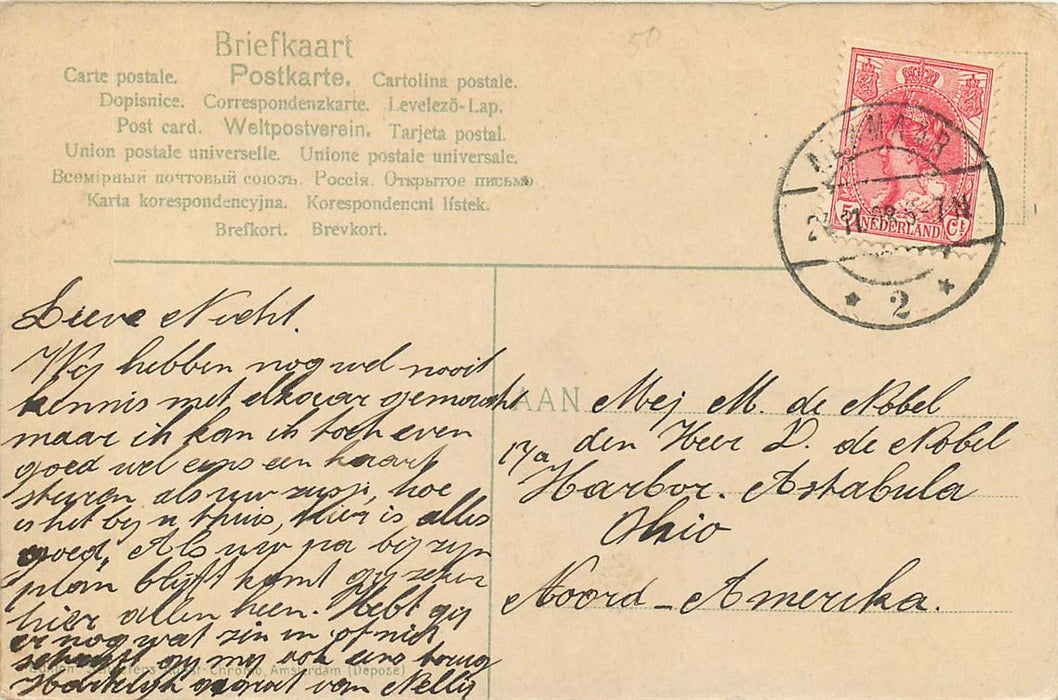 Briefkaart
Carte postale. Postkarte. Cartolina postale.
Dopisnice. Correspondenzkarte. Levelező-Lap.
Post card. Weltpostverein. Tarjeta postal.
Union postale universelle. Unione postale universale.
Всемірный почтовый союзъ. Россія. Открытое письмо
Karta korespondencyjna. Korespondencni lístek.
Brefkort. Brevkort.
50
ALKMAAR
11.08.5-7N
2
5 NEDERLAND Ct
Lieve Nicht.
Wij hebben nog wel nooit
kennis met elkaar gemaakt
maar ik kan ik toch even
goed wel eens een kaart
sturen als uw zusje, hoe
is het bij u thuis, hier is alles
goed. Als uw pa bij zijn
plan blijft komt gij zeker
hier allen heen. Hebt gij
er nog wat zin in of niet
schrijft gij mij ook eens terug
Hartelijk gegroet van Nelly
Chromo, Amsterdam (Déposé)
AAN Mej M. de Nobel
den Heer D. de Nobel
17a Harbor. Astabula
Ohio
Noord-Amerika.